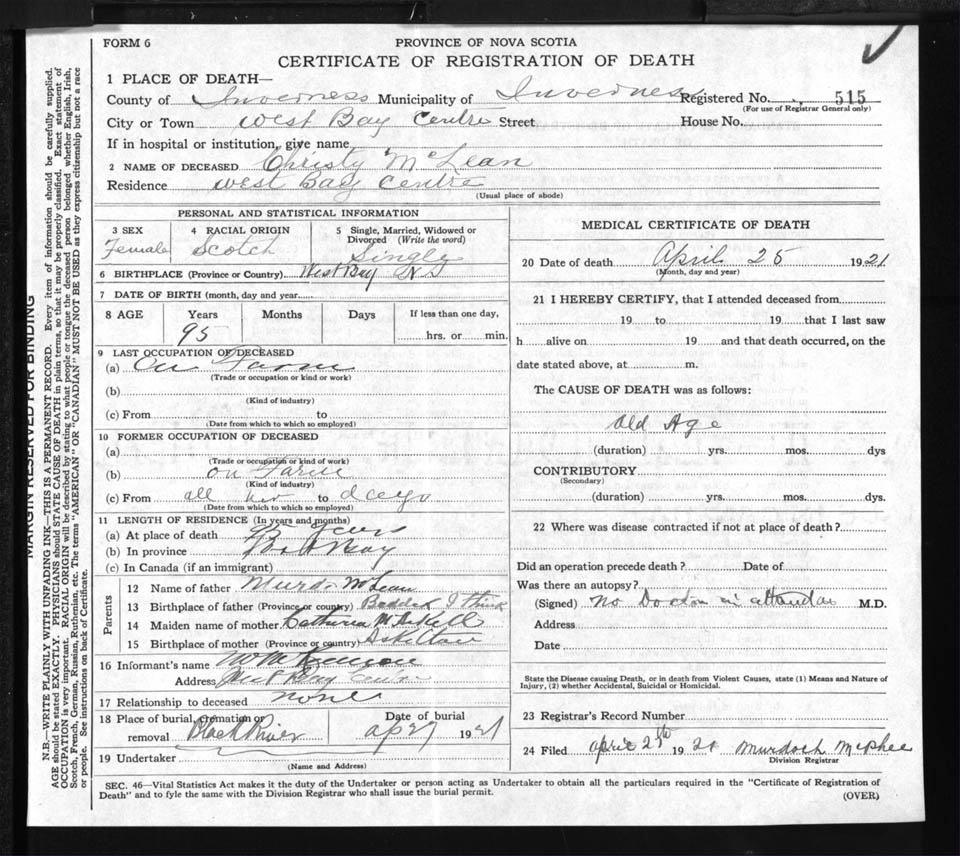 FORM 6
PROVINCE OF NOVA SCOTIA
CERTIFICATE OF REGISTRATION OF DEATH
1 PLACE OF DEATH—
County of Inverness Municipality of Inverness Registered No. 515
(For use of Registrar General only)
City or Town West Bay Centre Street House No.
If in hospital or institution, give name
2 NAME OF DECEASED Christy McLean
Residence West Bay Centre
(Usual place of abode)
PERSONAL AND STATISTICAL INFORMATION
3 SEX 4 RACIAL ORIGIN 5 Single, Married, Widowed or Divorced (Write the word)
Female Scotch Single
6 BIRTHPLACE (Province or Country) West Bay N S
7 DATE OF BIRTH (month, day and year)
8 AGE Years Months Days If less than one day,
95 hrs. or min.
9 LAST OCCUPATION OF DECEASED
(a) On Farm
(Trade or occupation or kind or work)
(b)
(Kind of industry)
(c) From to
(Date from which to which so employed)
10 FORMER OCCUPATION OF DECEASED
(a)
(Trade or occupation or kind of work)
(b) on Farm
(Kind of industry)
(c) From all her to days
(Date from which to which so employed)
11 LENGTH OF RESIDENCE (In years and months)
(a) At place of death years
(b) In province
(c) In Canada (if an immigrant)
Parents
12 Name of father Murdo McLean
13 Birthplace of father (Province or country) Baddeck I think
14 Maiden name of mother Catherine McAskill
15 Birthplace of mother (Province or country)
16 Informant's name
Address West Bay Centre
17 Relationship to deceased none
18 Place of burial, cremation or removal Black River Date of burial Apr 27 1921
19 Undertaker
(Name and Address)
MEDICAL CERTIFICATE OF DEATH
20 Date of death April 25 1921
(Month, day and year)
21 I HEREBY CERTIFY, that I attended deceased from
19 to 19 that I last saw
h alive on 19 and that death occurred, on the
date stated above, at m.
The CAUSE OF DEATH was as follows:
Old Age
(duration) yrs. mos. dys
CONTRIBUTORY
(Secondary)
(duration) yrs. mos. dys.
22 Where was disease contracted if not at place of death?
Did an operation precede death? Date of
Was there an autopsy?
(Signed) No Doctor in attendance M.D.
Address
Date
State the Disease causing Death, or in death from Violent Causes, state (1) Means and Nature of
Injury, (2) whether Accidental, Suicidal or Homicidal.
23 Registrar's Record Number
24 Filed April 25th 1921 Murdoch McPhee
Division Registrar
SEC. 46—Vital Statistics Act makes it the duty of the Undertaker or person acting as Undertaker to obtain all the particulars required in the "Certificate of Registration of
Death" and to fyle the same with the Division Registrar who shall issue the burial permit.
(OVER)
MARGIN RESERVED FOR BINDING
N.B.—WRITE PLAINLY WITH UNFADING INK—THIS IS A PERMANENT RECORD. Every item of information should be carefully supplied.
AGE should be stated EXACTLY. PHYSICIANS should STATE CAUSE OF DEATH in plain terms, so that it may be properly classified. Exact statement of
OCCUPATION is very important. RACIAL ORIGIN will be described by stating to what people or tongue the deceased person belonged whether English, Irish,
Scotch, French, German, Russian, Ruthenian, etc. The terms "AMERICAN" OR "CANADIAN" MUST NOT BE USED as they express citizenship but not a race
or people. See instructions on back of Certificate.